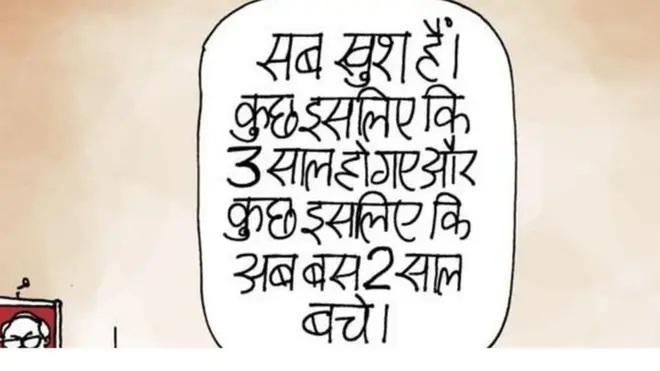 सब खुश हैं।
कुछ इसलिए कि
3 साल हो गए और
कुछ इसलिए कि
अब बस 2 साल
बचे।